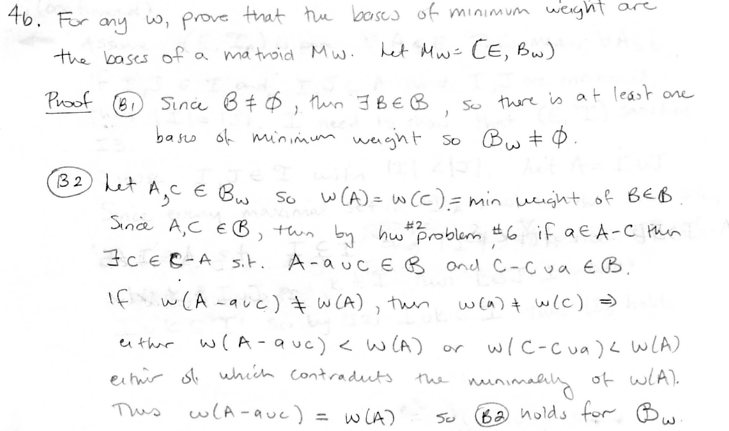 4b. For any w, prove that the bases of minimum weight are
the bases of a matroid Mw. Let Mw = (E, Bw)
Proof (B1) Since B ≠ ∅, then ∃ B ∈ B, so there is at least one
basis of minimum weight so Bw ≠ ∅.
(B2) Let A, C ∈ Bw so w(A) = w(C) = min weight of B∈B.
Since A, C ∈ B, then by hw #2 problem #6 if a ∈ A-C then
∃ c ∈ C-A s.t. A-a∪c ∈ B and C-c∪a ∈ B.
If w(A-a∪c) ≠ w(A), then w(a) ≠ w(c) ⇒
either w(A-a∪c) < w(A) or w(C-c∪a) < w(A)
either of which contradicts the minimality of w(A).
Thus w(A-a∪c) = w(A) so (B2) holds for Bw.